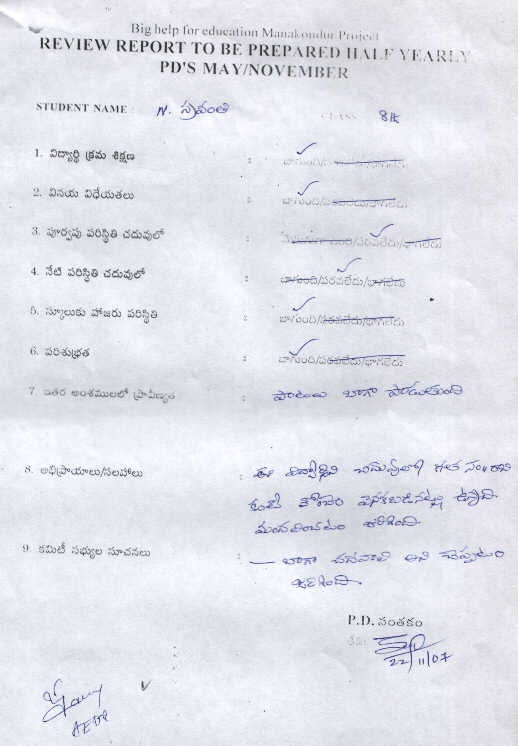 Big help for education Manakondur Project
REVIEW REPORT TO BE PREPARED HALF YEARLY
PD'S MAY/NOVEMBER
STUDENT NAME : N. స్రవంతి CLASS 8th
1. విద్యార్థి క్రమ శిక్షణ : బాగుంది/పరవలేదు/బాగలేదు
2. వినయ విధేయతలు : బాగుంది/పరవలేదు/బాగలేదు
3. పూర్వపు పరిస్థితి చదువులో : బాగుంది/పరవలేదు/బాగలేదు
4. నేటి పరిస్థితి చదువులో : బాగుంది/పరవలేదు/బాగలేదు
5. స్కూలుకు హాజరు పరిస్థితి : బాగుంది/పరవలేదు/బాగలేదు
6. పరిశుభ్రత : బాగుంది/పరవలేదు/బాగలేదు
7. ఇతర అంశములలో ప్రావీణ్యత : పాటలు బాగా పాడుతుంది
8. అభిప్రాయాలు/సలహాలు : ఈ విద్యార్థిని చదువులో గత సం॥
కంటే కొంచెం వెనకబడినట్లు ఉన్నది.
మందలించటం జరిగింది.
9. కమిటీ సభ్యుల సూచనలు : — బాగా చదవాలి అని చెప్పటం
జరిగింది.
P.D. సంతకం
22/11/07